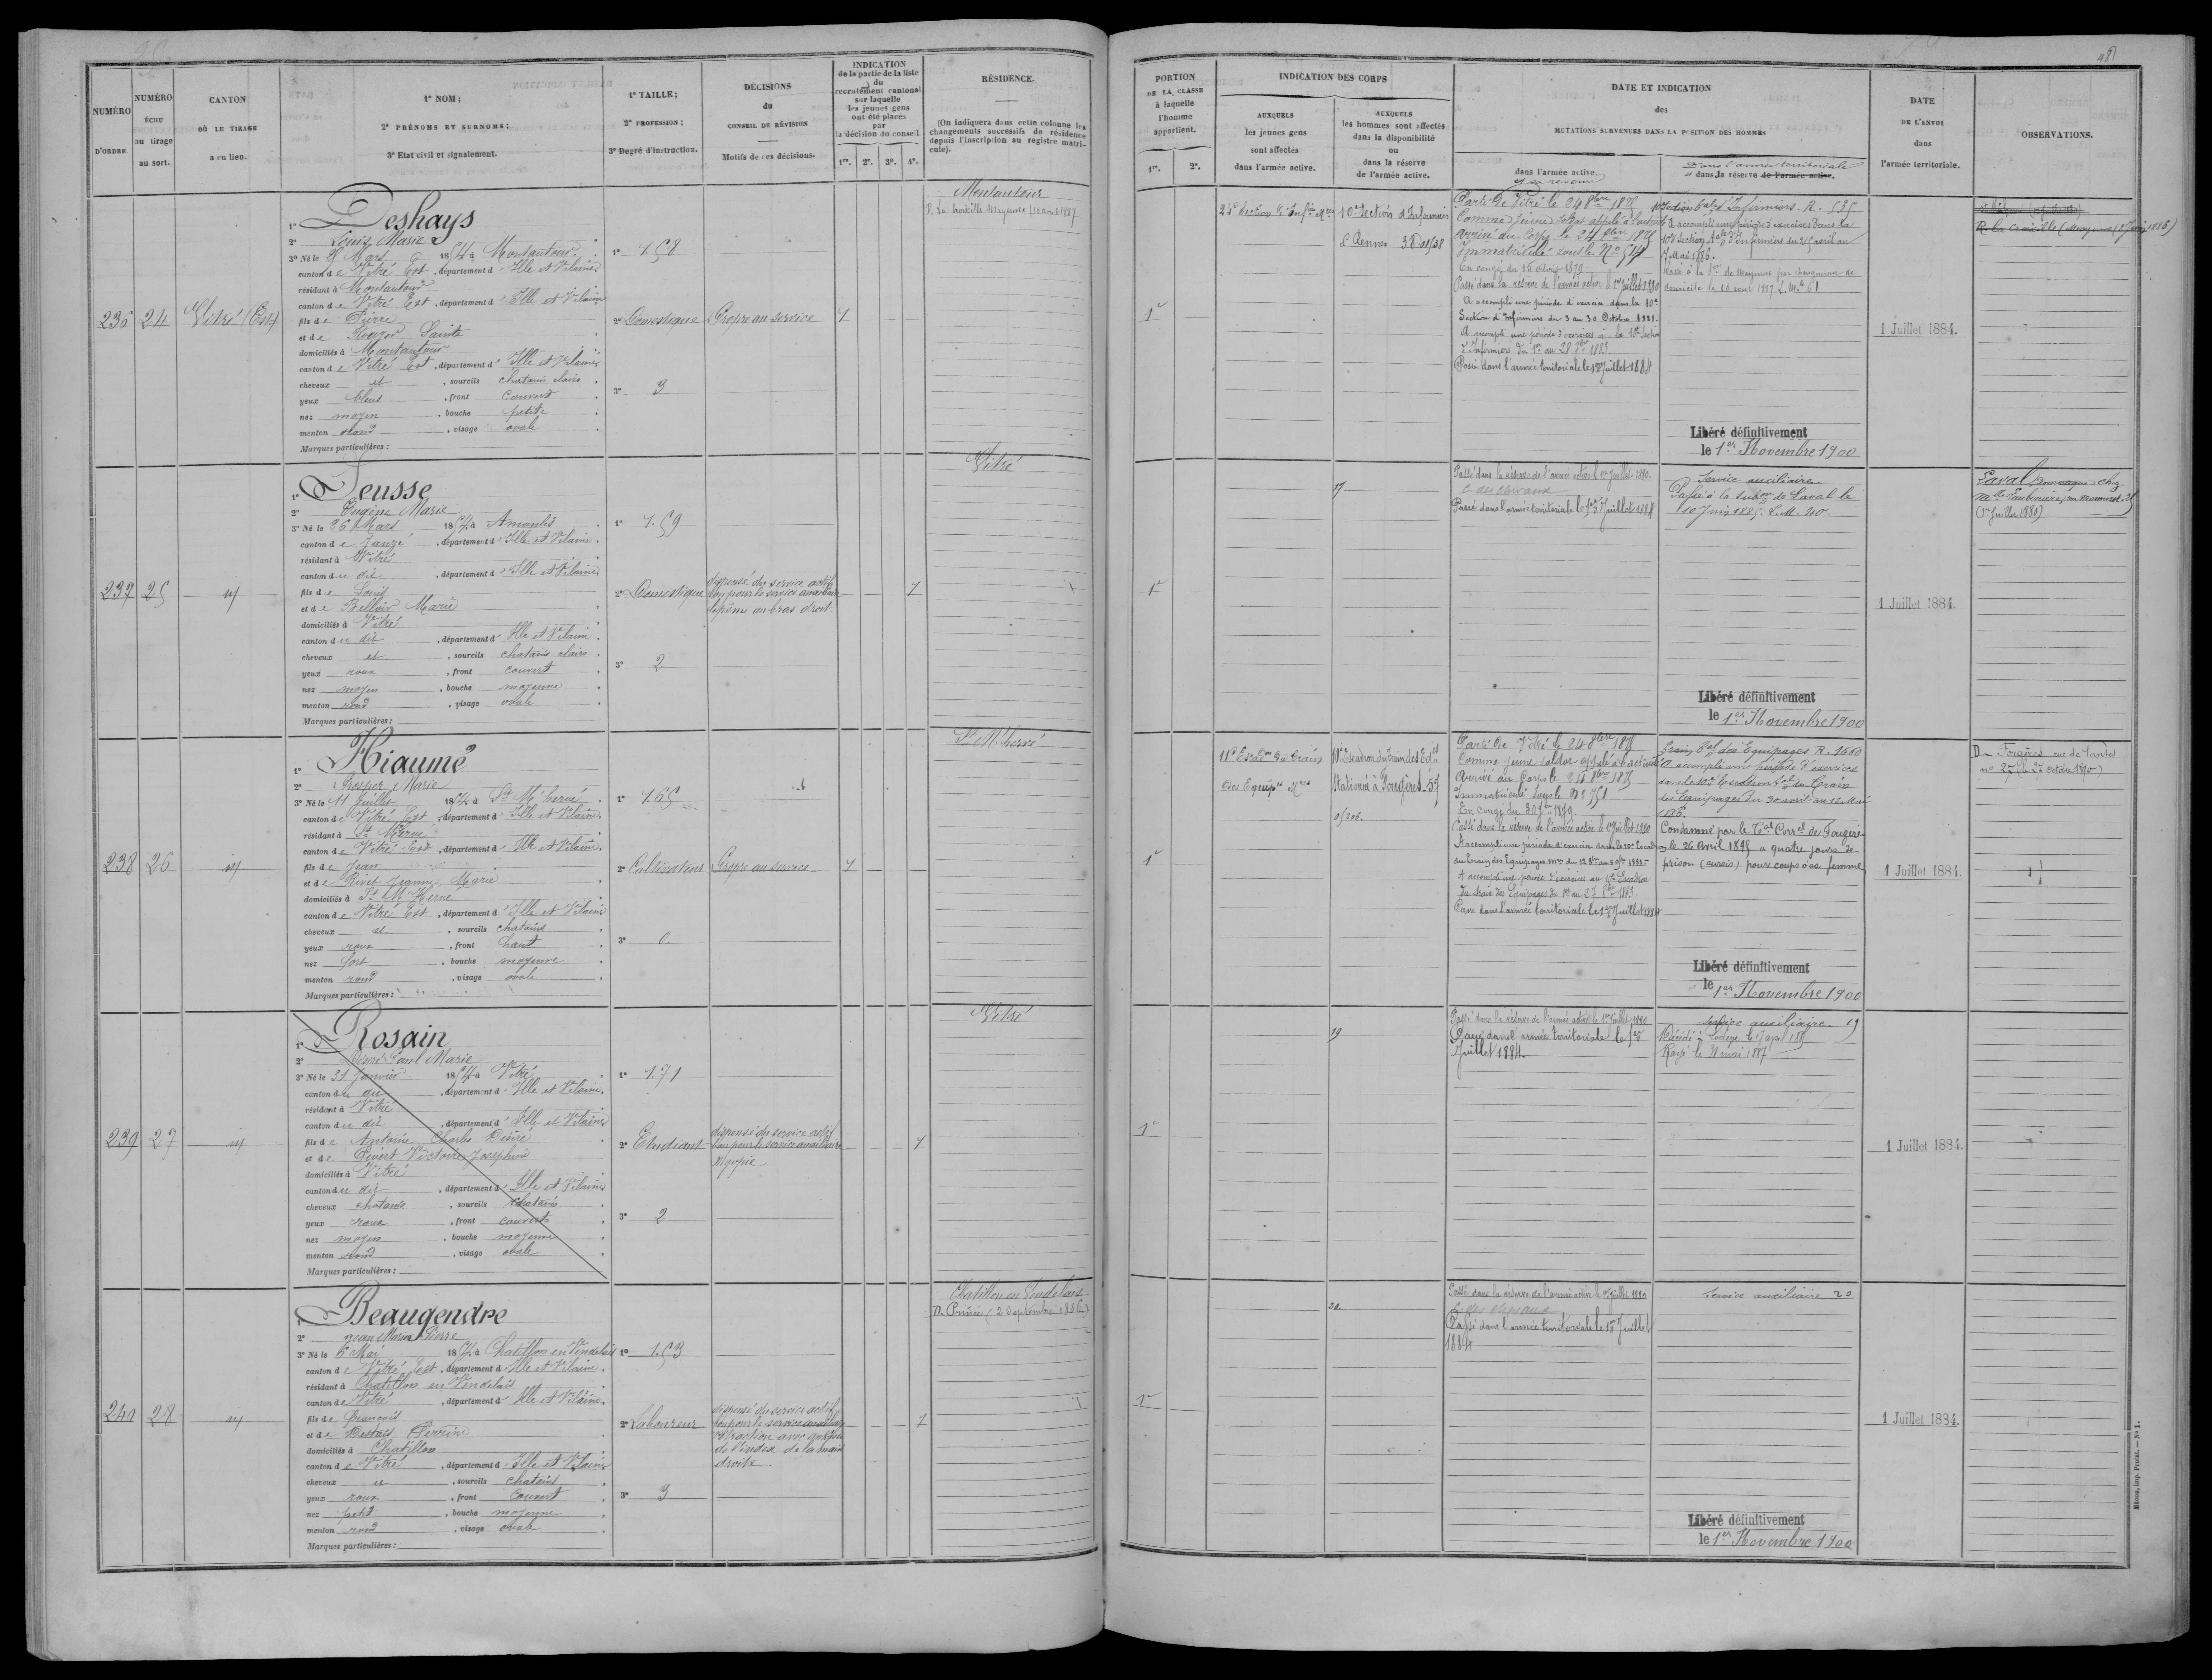 NUMÉRO
D'ORDRE
NUMÉRO
échu
au tirage
au sort.
CANTON
OÙ LE TIRAGE
a eu lieu.
1° NOM;
2° PRÉNOMS ET SURNOMS;
3° Etat civil et signalement.
1° TAILLE;
2° PROFESSION;
3° Degré d'instruction.
DÉCISIONS
du
CONSEIL DE RÉVISION
Motifs de ces décisions.
INDICATION
de la partie de la liste
du
recrutement cantonal
sur laquelle
les jeunes gens
ont été placés
par
la décision du conseil
1re. 2e. 3e. 4e.
RÉSIDENCE.
(On indiquera dans cette colonne les
changements successifs de résidence
depuis l'inscription au registre matri-
cule).
236 24 Vitré (Est)
1° Deshays
2° Louis Marie
3° Né le Mars 1854 à Montautour
canton de Vitré Est, département d'Ille et Vilaine
résidant à Montautour
canton de Vitré Est, département d'Ille et Vilaine
fils de Pierre
et de Sainte
domiciliés à Montautour
canton de Vitré Est, département d'Ille et Vilaine
cheveux et, sourcils chatains clairs
yeux bleus, front couvert
nez moyen, bouche petite
menton rond, visage ovale
Marques particulières:
1° 1.58
2° Domestique
3° 3
Propre au service
1
Montautour
D. La Croixille Mayenne (16 avril 1887
237 25 id
1° Deusse
2° Eugène Marie
3° Né le 26 Mars 1854 à Amanlis
canton de Janzé, département d'Ille et Vilaine
résidant à Vitré
canton du dit, département d'Ille et Vilaine
fils de Louis
et de Marie
domiciliés à Vitré
canton du dit, département d'Ille et Vilaine
cheveux et, sourcils chatains clairs
yeux roux, front couvert
nez moyen, bouche moyenne
menton rond, visage ovale
Marques particulières:
1° 1.59
2° Domestique
3° 2
dispensé du service actif
bon pour le service auxiliaire
lipôme au bras droit
1
Vitré
238 26 id
1° Hiaumé
2° Prosper Marie
3° Né le 11 Juillet 1854 à St M'hervé
canton de Vitré Est, département d'Ille et Vilaine
résidant à St M'hervé
canton de Vitré Est, département d'Ille et Vilaine
fils de Jean
et de Jeanne Marie
domiciliés à St M'Hervé
canton de Vitré Est, département d'Ille et Vilaine
cheveux et, sourcils chatains
yeux roux, front haut
nez fort, bouche moyenne
menton rond, visage ovale
Marques particulières:
1° 1.65
2° Cultivateur
3° 0
Propre au service
1
St M'hervé
239 27 id
1° Rosain
2° Désiré Paul Marie
3° Né le 31 Janvier 1854 à Vitré
canton du dit, département d'Ille et Vilaine
résidant à Vitré
canton du dit, département d'Ille et Vilaine
fils de Antoine Charles Désiré
et de Victoire Joséphine
domiciliés à Vitré
canton du dit, département d'Ille et Vilaine
cheveux chatains, sourcils chatains
yeux roux, front couvert
nez moyen, bouche moyenne
menton rond, visage ovale
Marques particulières:
1° 1.71
2° Etudiant
3° 2
dispensé du service actif
bon pour le service auxiliaire
Myopie
1
Vitré
240 28 id
1° Beaugendre
2° Jean Marie Pierre
3° Né le 6 Mai 1854 à Chatillon en Vendelais
canton de Vitré Est, département d'Ille et Vilaine
résidant à Chatillon en Vendelais
canton de Vitré, département d'Ille et Vilaine
fils de François
et de Perrine
domiciliés à Chatillon
canton de Vitré, département d'Ille et Vilaine
cheveux et, sourcils chatains
yeux roux, front couvert
nez petit, bouche moyenne
menton rond, visage ovale
Marques particulières:
1° 1.53
2° Laboureur
3° 3
dispensé du service actif
bon pour le service auxiliaire
rétraction avec
de l'index de la main
droite
1
Chatillon en Vendelais
D. Princé (2 Septembre 1886)
PORTION
DE LA CLASSE
à laquelle
l'homme
appartient.
1re. 2e.
INDICATION DES CORPS
AUXQUELS
les jeunes gens
sont affectés
dans l'armée active.
AUXQUELS
les hommes sont affectés
dans la disponibilité
ou
dans la réserve
de l'armée active.
DATE ET INDICATION
des
MUTATIONS SURVENUES DANS LA POSITION DES HOMMES
dans l'armée active
et en réserve
Dans l'armée territoriale
et dans la réserve de l'armée active.
DATE
DE L'ENVOI
dans
l'armée territoriale.
OBSERVATIONS.
1re
24e Section d'Infirs Mres
10e Section d'Infirmiers
à Rennes
Parti de Vitré le 24 8bre 1875
Comme jeune soldat appelé à l'activité
Arrivé au Corps le 24 8bre 1875
Immatriculé sous le No 514
Passé dans la réserve de l'armée active le 1er juillet 1880
A accompli une période d'exercice dans la 10e
Section d'Infirmiers du 3 au 30 Octobre 1881.
A accompli une période d'exercices à la 10e Section
d'Infirmiers du 1er au 28 1883
Passé dans l'armée territoriale le 1er Juillet 1884
10e Section d'Infirmiers. R. 535
A accompli une période d'exercices dans la
10e Section d'Infirmiers du 25 avril au
7 Mai 1886.
Passé à la de Mayenne par changement de
domicile le 16 avril 1887
Libéré définitivement
le 1er Novembre 1900
1 Juillet 1884.
1re
17
Passé dans la réserve de l'armée active le 1er Juillet 1880.
Passé dans l'armée territoriale le 1er Juillet 1884
Service auxiliaire.
Passé à la Subon de Laval le
Libéré définitivement
le 1er Novembre 1900
1 Juillet 1884.
Laval chez
(1er Juillet 1880)
1re
11e Escadon du train
des Equipes Mres
10e Escadron du train des Eqes
Stationné à Fougères
Parti de Vitré le 24 8bre 1875
Comme jeune soldat appelé à l'activité
Arrivé au Corps le 24 8bre 1875
Immatriculé sous le No 751
Passé dans la réserve de l'armée active le 1er Juillet 1880
A accompli une période d'exercices au 10e Escadron
du train des Equipages du 1er au 27 1883.
Passé dans l'armée territoriale le 1er Juillet 1884
Train des Equipages R. 1660
A accompli une période d'exercices
dans le 10e Escadron du Train
des Equipages du 30 avril au 12 Mai
1886.
Condamné par le Tal Correl de Fougères
le 26 Avril 1895 à quatre jours de
prison (sursis) pour coups à sa femme
Libéré définitivement
le 1er Novembre 1900
1 Juillet 1884.
D. Fougères rue de
no 27 (le 27 octobre 1890)
1re
19
Passé dans la réserve de l'armée active le 1er Juillet 1880
Passé dans l'armée territoriale le 1er
Juillet 1884.
Service auxiliaire. 19
Rayé le 21 mai 1887
1 Juillet 1884.
1re
20.
Passé dans la réserve de l'armée active le 1er juillet 1880
Passé dans l'armée territoriale le 1er Juillet
1884
Service auxiliaire 20
Libéré définitivement
le 1er Novembre 1900
1 Juillet 1884.